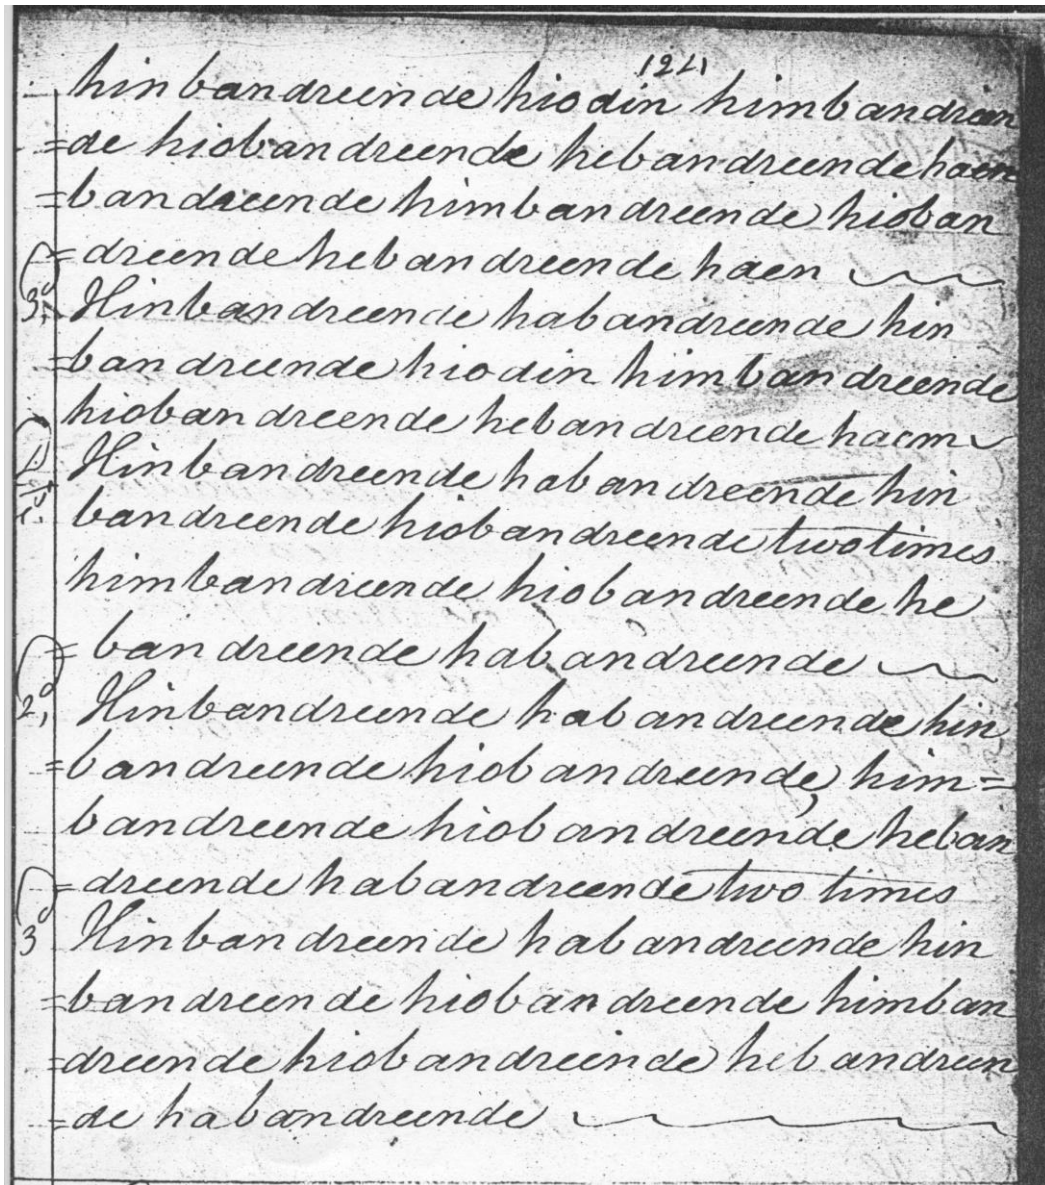 121
hinbandreende hiodin himbandreen
=de hiobandreende hebandreende haen
=bandreende himbandreende hioban
=dreende hebandreende haen
3, Hinbandreende habandreende hin
=bandreende hiodin himbandreende
hiobandreende hebandreende haem
Hinbandreende habandreende hin
bandreende hiobandreende two times
himbandreende hiobandreende he
=bandreende habandreende
2, Hinbandreende habandreende hin
=bandreende hiobandreende, him=
bandreende hiobandreende heban
=dreende habandreende two times
3 Hinbandreende habandreende hin
=bandreende hiobandreende himban
=dreende hiobandreende hebandreen
=de habandreende